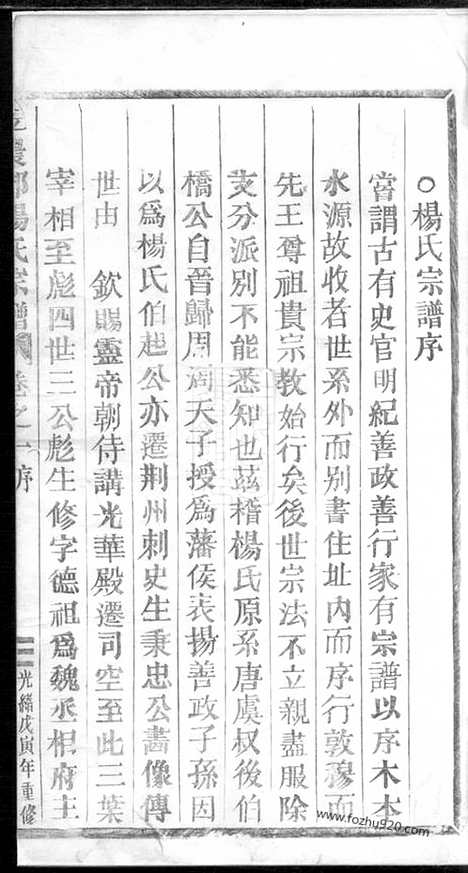 ○楊氏宗譜序
嘗謂古有史官明紀善政善行家有宗譜以序木本
水源故收者世系外而别書住址内而序行敦穆而
先王尊祖貴宗教始行矣後世宗法不立親盡服除
支分派别不能悉知也茲稽楊氏原系唐虞叔後伯
橋公自晉歸周周天子授爲藩侯表揚善政子孫因
以爲楊氏伯起公亦遷荆州刺史生秉忠公畵像傳
世由　欽賜靈帝朝侍講光華殿遷司空至此三葉
宰相至彪四世三公彪生修字德祖爲魏丞相府主
農郡楊氏宗譜　卷之一　序
光緒戊寅年重修
www.fozhu920.com